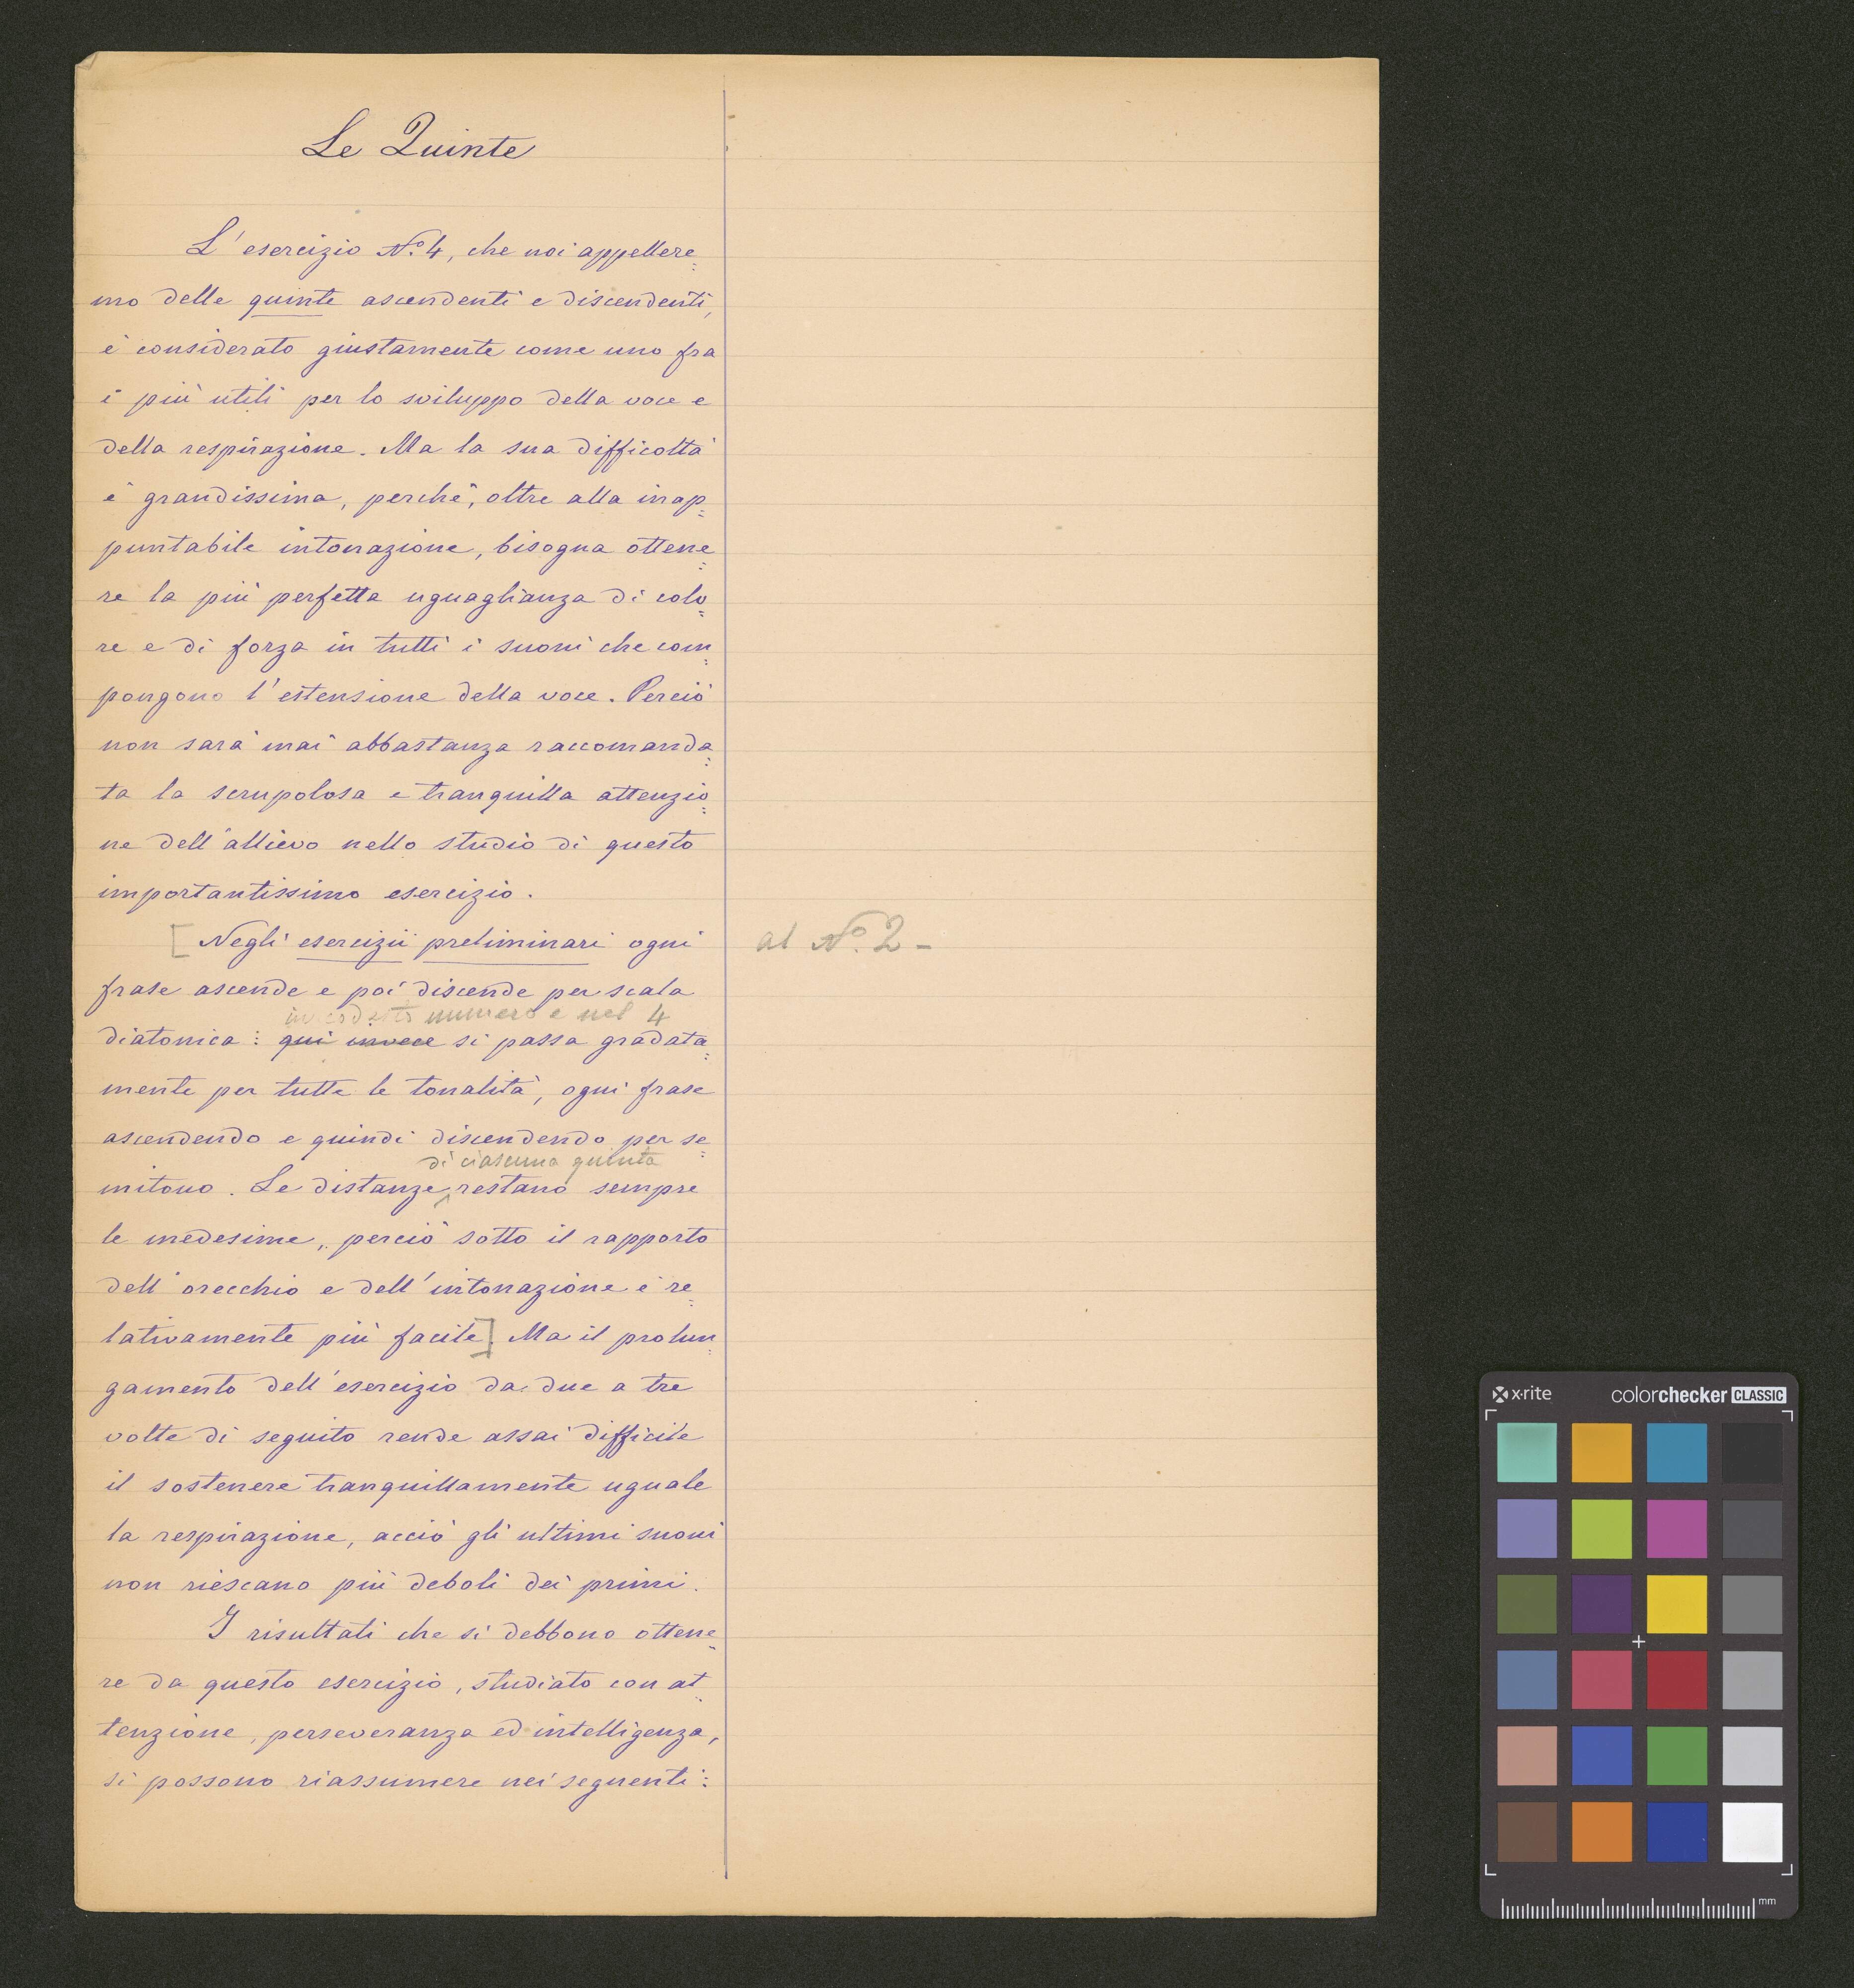 Le Quinte
L'esercizio N.º 4, che noi appellere=
mo delle quinte ascendenti e discendenti,
è considerato giustamente come uno fra
i più utili per lo sviluppo della voce e
della respirazione. Ma la sua difficoltà
è grandissima, perchè, oltre alla inap=
puntabile intonazione, bisogna ottene=
re la più perfetta uguaglianza di colo=
re e di forza in tutti i suoni che com=
pongono l'estensione della voce. Perciò
non sarà mai abbastanza raccomanda=
ta la scrupolosa e tranquilla attenzio=
ne dell'allievo nello studio di questo
importantissimo esercizio.
[Negli esercizii preliminari ogni
al N.º 2 -
frase ascende e poi discende per scala
numero e nel 4
diatonica: qui invece si passa gradata=
mente per tutte le tonalità, ogni frase
ascendendo e quindi discendendo per se=
di ciascuna quinta
mitono. Le distanze restano sempre
le medesime, perciò sotto il rapporto
dell'orecchio e dell'intonazione è re=
lativamente più facile]. Ma il prolun=
gamento dell'esercizio da due a tre
volte di seguito rende assai difficile
il sostenere tranquillamente uguale
la respirazione, acciò gli ultimi suoni
non riescano più deboli dei primi.
I risultati che si debbono ottene=
re da questo esercizio, studiato con at=
tenzione, perseveranza ed intelligenza,
si possono riassumere nei seguenti:
x·rite
colorchecker CLASSIC
mm